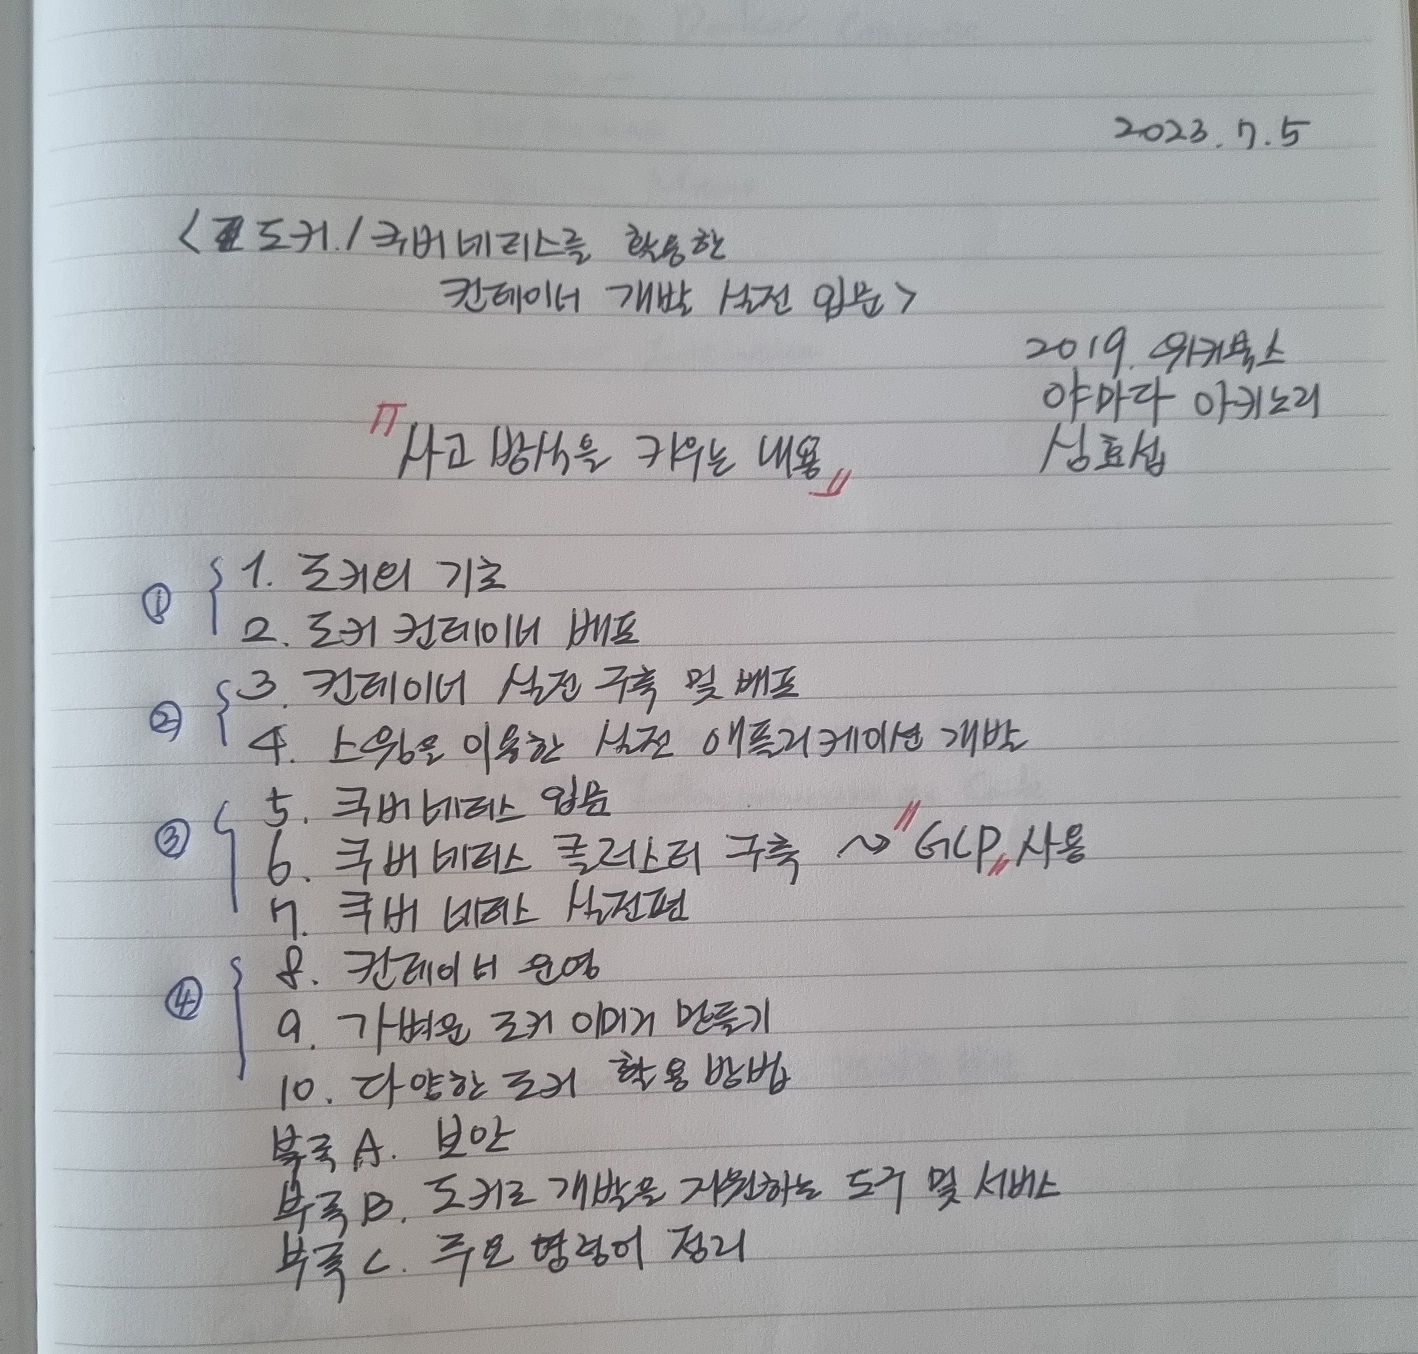 2023.7.5
<도커/쿠버네티스를 활용한
컨테이너 개발 실전 입문>
2019. 위키북스
야마다 아키노리
심효섭
"사고 방식을 키우는 내용"
① 1. 도커의 기초
2. 도커 컨테이너 배포
② 3. 컨테이너 실전 구축 및 배포
4. 스웜을 이용한 실전 애플리케이션 개발
③ 5. 쿠버네티스 입문
6. 쿠버네티스 클러스터 구축 ~> "GCP" 사용
7. 쿠버네티스 실전편
④ 8. 컨테이너 운영
9. 가벼운 도커 이미지 만들기
10. 다양한 도커 활용 방법
부록 A. 보안
부록 B. 도커로 개발을 지원하는 도구 및 서비스
부록 C. 주요 명령어 정리